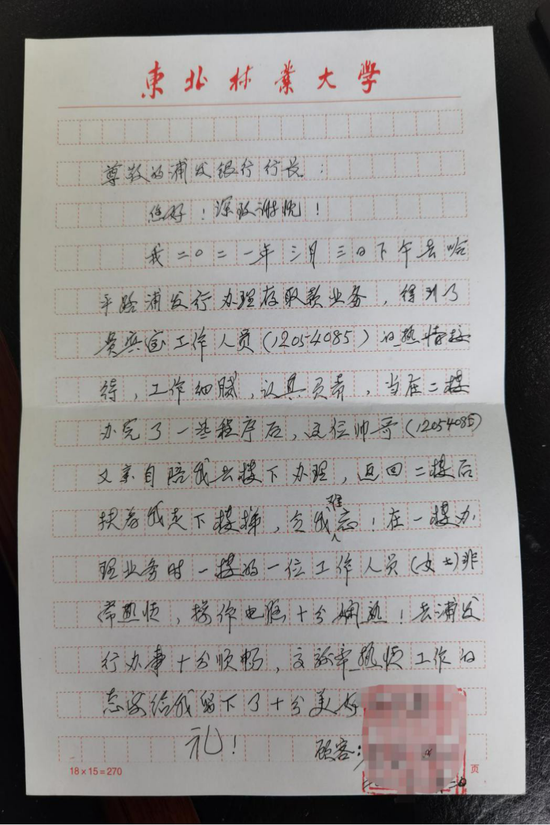 東北林業大学
尊敬的浦发银行行长：
您好！深致谢忱！
我二〇二一年三月三日下午去哈
平路浦发行办理存取款业务，得到了
贵宾室工作人员(12054085)的热情接
待，工作细腻，认真负责，当在二楼
办完了一些程序后，这位帅哥(12054085)
又亲自陪我去楼下办理，返回二楼后
扶着我走下楼梯，令我难忘！在一楼办
理业务时一楼的一位工作人员(女士)非
常热情，操作电脑十分娴熟！去浦发
行办事十分顺畅，
工作的
给我留下了十分美好
礼！ 顾客：
18×15=270 页